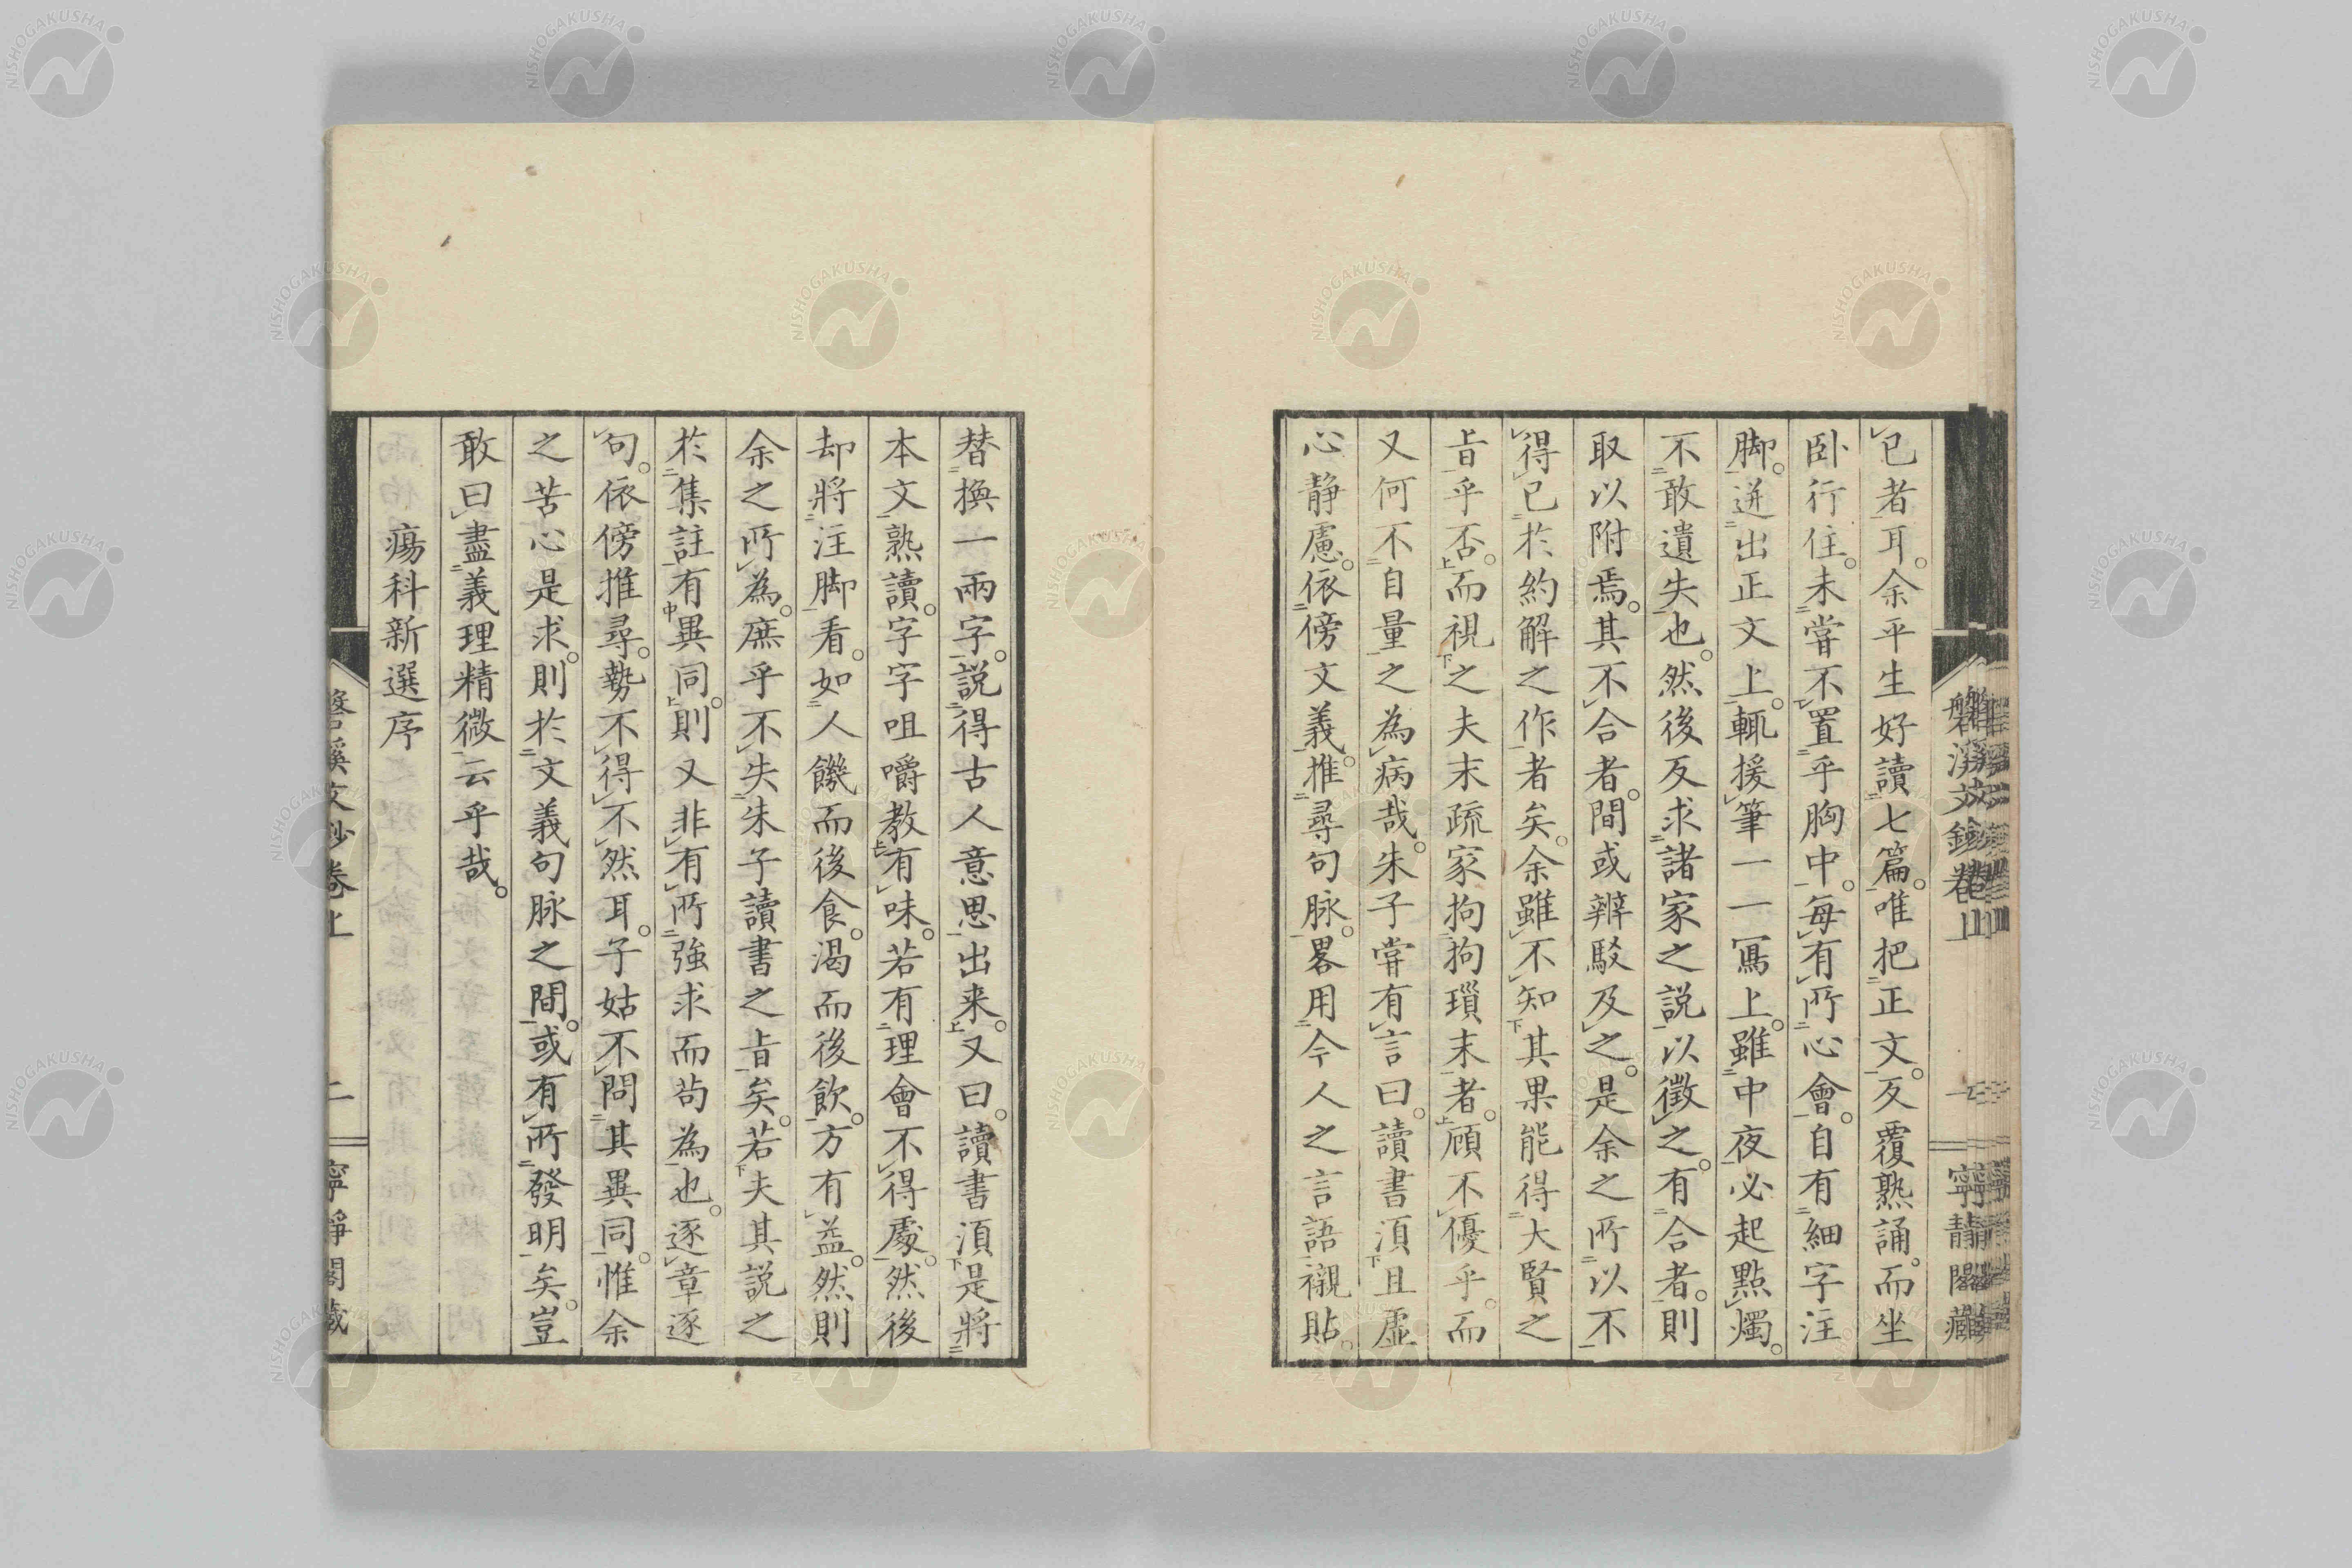 已者耳。余平生好讀七篇。唯把正文。反覆熟誦。而坐
臥行住。未嘗不置乎胸中。每有所心會。自有細字注
脚。迸出正文上。輒援筆一一寫上。雖中夜必起點燭。
不敢遺失也。然後反求諸家之説以徵之。有合者。則
取以附焉。其不合者。間或辨駁及之。是余之所以不
得已於約解之作者矣。余雖不知其果能得大賢之
旨乎否。而視之夫末疏家拘拘瑣末者。顧不優乎。而
又何不自量之為病哉。朱子嘗有言曰。讀書湏且虛
心靜慮。依傍文義。推尋句脉。畧用今人之言語襯貼。
替換一兩字。説得古人意思出来。又曰。讀書湏是將
本文熟讀。字字咀嚼教有味。若有理會不得處。然後
却將注脚看。如人饑而後食。渴而後飲。方有益。然則
余之所為。庶乎不失朱子讀書之旨矣。若夫其説之
於集註有異同。則又非有所強求而苟為也。逐章逐
句。依傍推尋。勢不得不然耳。子姑不問其異同。惟余
之苦心是求。則於文義句脉之間。或有所發明矣。豈
敢曰盡義理精微云乎哉。
瘍科新選序
磐溪文鈔卷上
寧靜閣藏